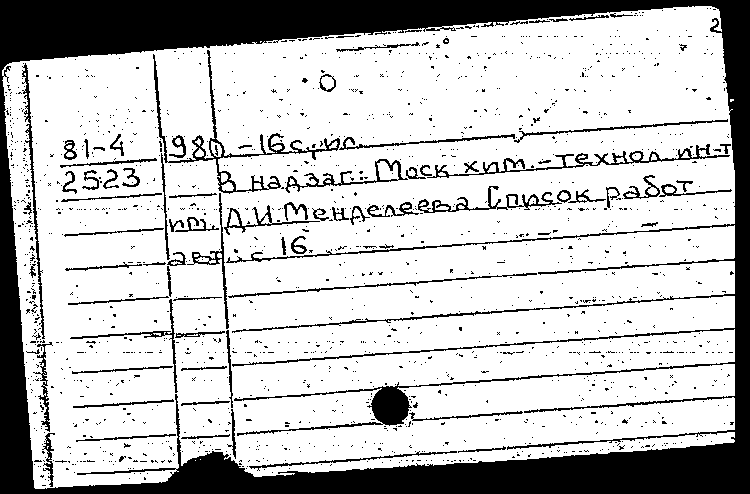 2
81-4 1980.-16с.; ил.
2523 В надзаг.: Моск хим.-технол ин-т
им. Д.И.Менделеева. Список работ
авт.: с 16.